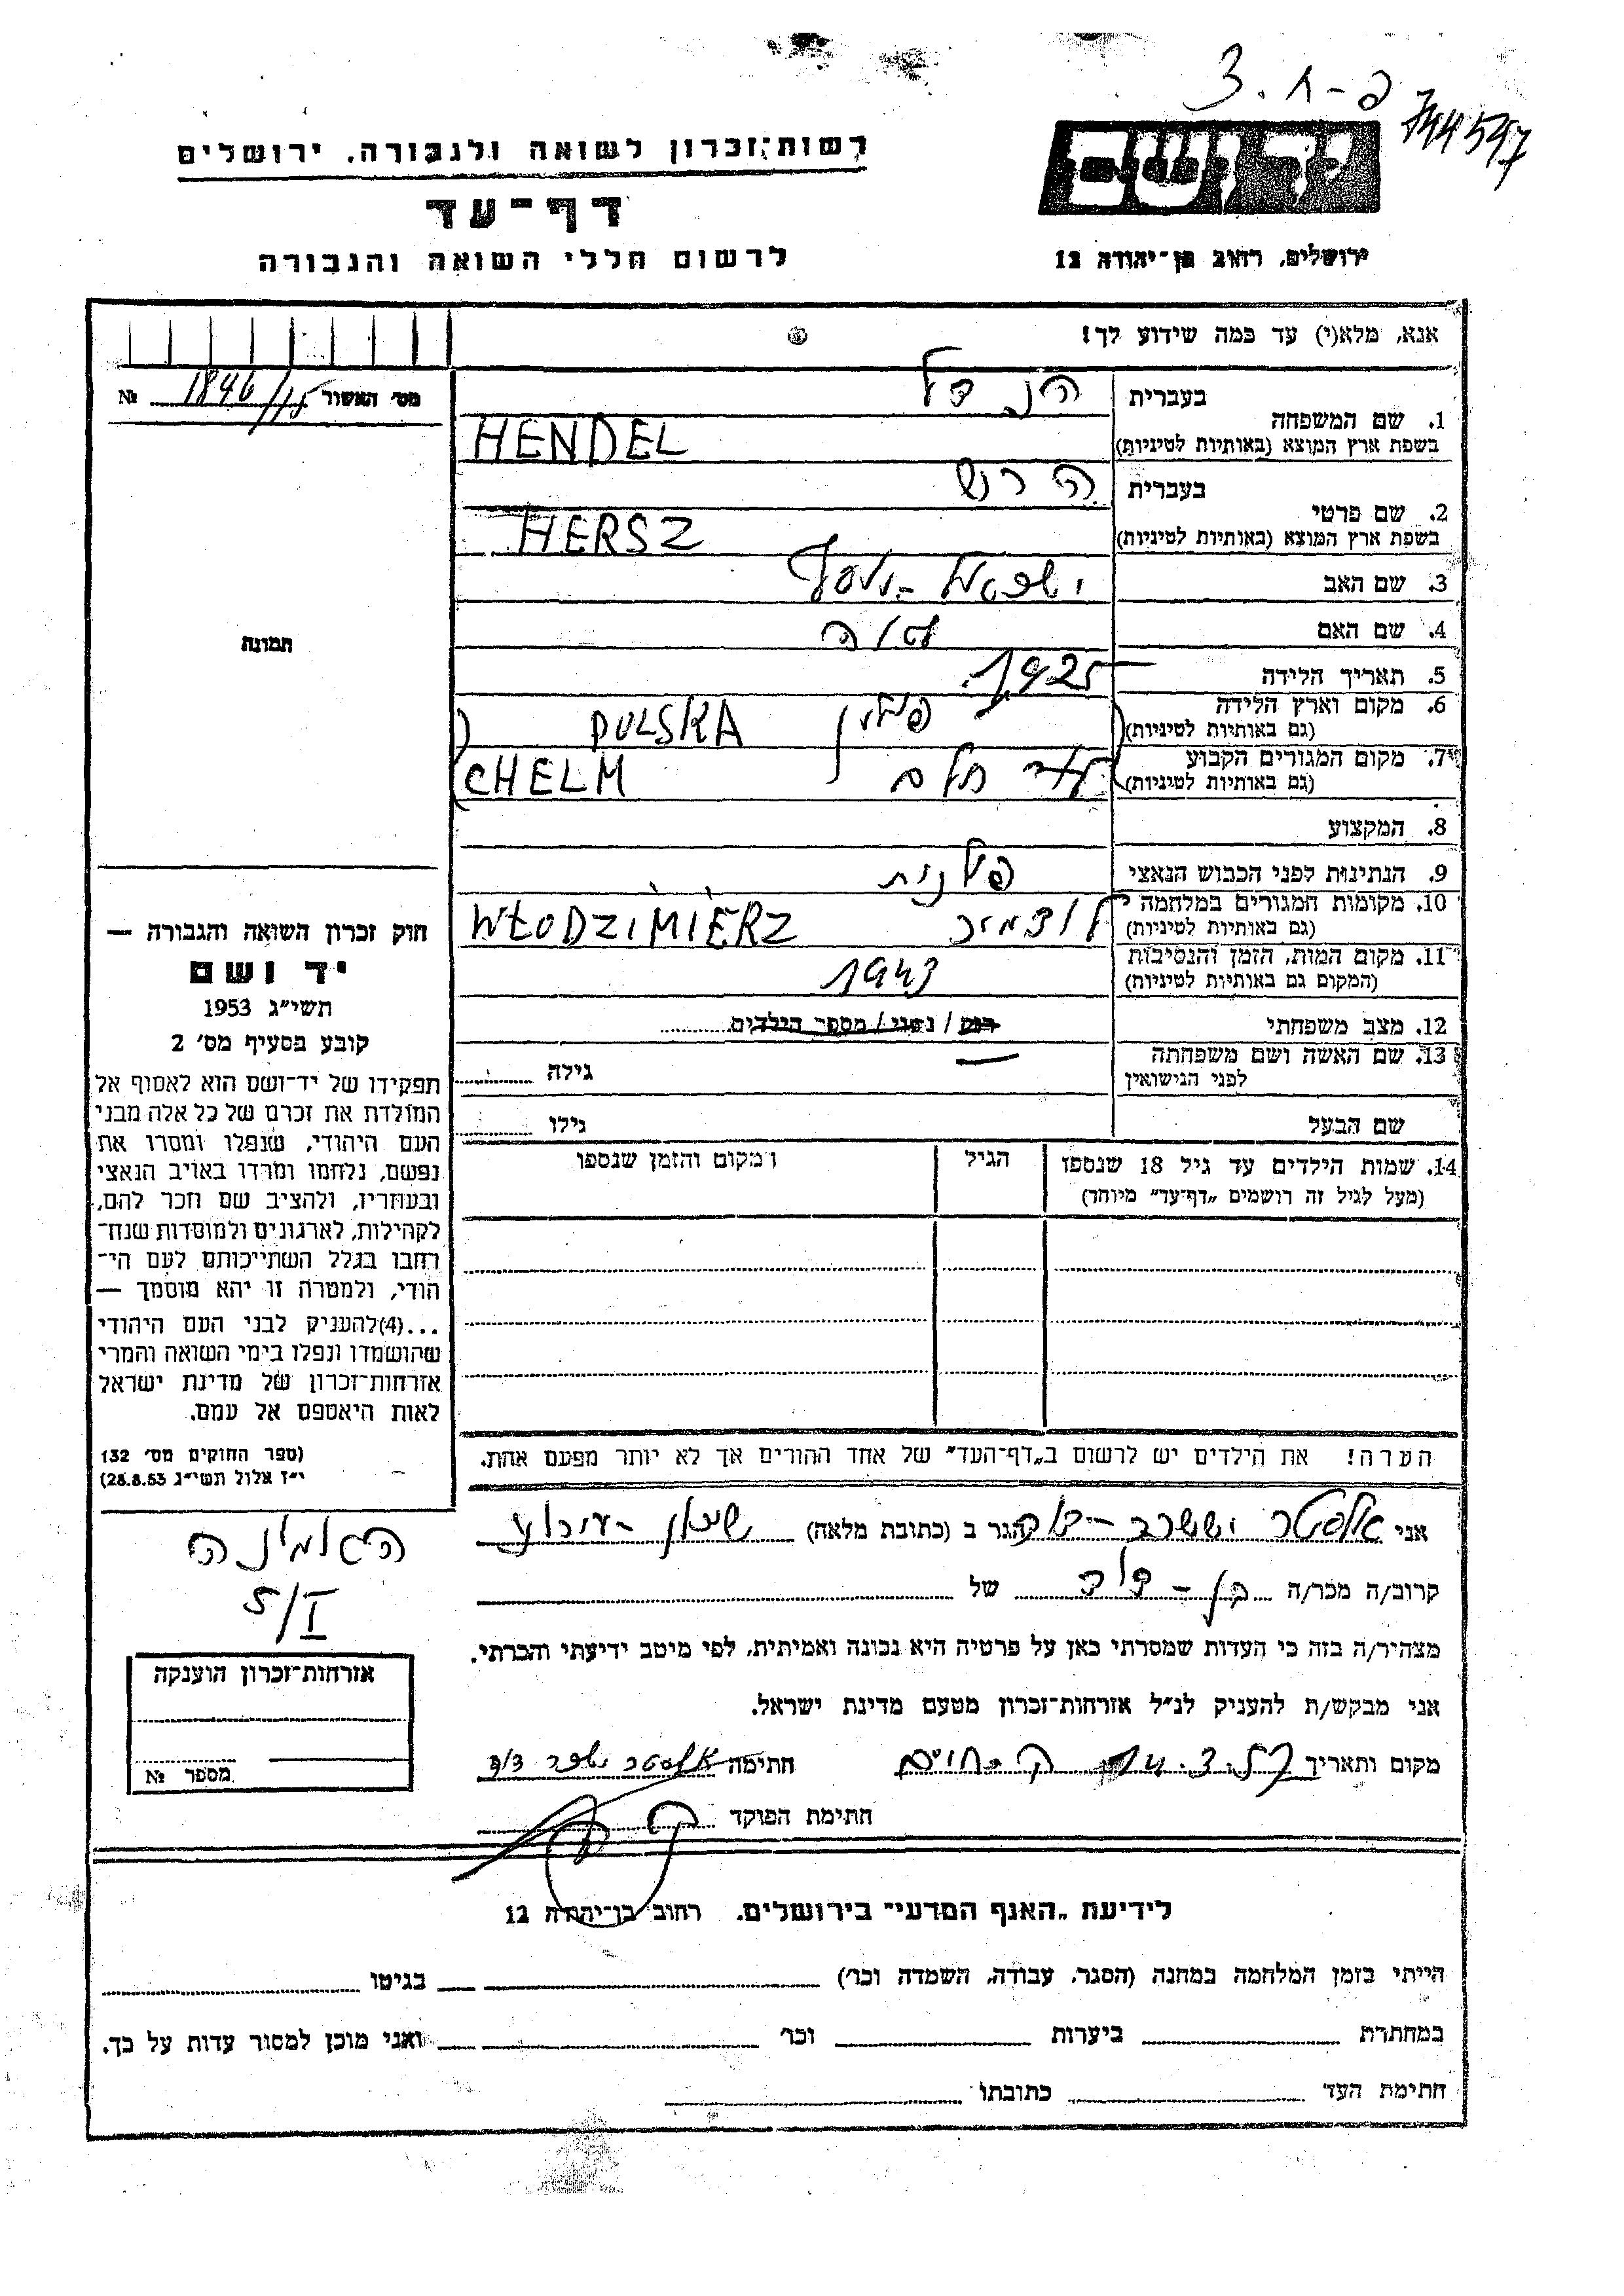 3.8-פ
744597
רשות־זכרון לשואה ולגבורה, ירושלים
דף־עד
לרשום חללי השואה והגבורה
יד ושם
ירושלים, רחוב בן־יהודה 12
אנא, מלא(י) עד כמה שידוע לך!
מס׳ האשור 1846/15 №
1. שם המשפחה בעברית הנדל
בשפת ארץ המוצא (באותיות לטיניות) HENDEL
2. שם פרטי בעברית הרש
בשפת ארץ המוצא (באותיות לטיניות) HERSZ
3. שם האב
4. שם האם
5. תאריך הלידה 1925
6. מקום וארץ הלידה (גם באותיות לטיניות) פולין POLSKA
7. מקום המגורים הקבוע (גם באותיות לטיניות) חלם CHELM
8. המקצוע
9. הנתינות לפני הכבוש הנאצי פולנית
10. מקומות המגורים במלחמה (גם באותיות לטיניות) WŁODZIMIERZ
11. מקום המות, הזמן והנסיבות (המקום גם באותיות לטיניות) 1943
12. מצב משפחתי רוק / נשוי / מספר הילדים
13. שם האשה ושם משפחתה לפני הנישואין גילה
שם הבעל גילו
14. שמות הילדים עד גיל 18 שנספו הגיל ומקום והזמן שנספו
(מעל לגיל זה רושמים „דף־עד״ מיוחד)
הערה! את הילדים יש לרשום ב„דף־העד״ של אחד ההורים אך לא יותר מפעם אחת.
תמונה
חוק זכרון השואה והגבורה —
יד ושם
תשי״ג 1953
קובע בסעיף מס׳ 2
תפקידו של יד־ושם הוא לאסוף אל
המולדת את זכרם של כל אלה מבני
העם היהודי, שנפלו ומסרו את
נפשם, נלחמו ומרדו באויב הנאצי
ובעוזריו, ולהציב שם וזכר להם,
לקהילות, לארגונים ולמוסדות שנח־
רבו בגלל השתייכותם לעם הי־
הודי, ולמטרה זו יהא מוסמך —
...(4)להעניק לבני העם היהודי
שהושמדו ונפלו בימי השואה והמרי
אזרחות־זכרון של מדינת ישראל
לאות היאספם אל עמם.
(ספר החוקים מס׳ 132
י״ז אלול תשי״ג 28.8.53)
אני הגר ב (כתובת מלאה)
קרוב/ה מכר/ה בן-דוד של
מצהיר/ה בזה כי העדות שמסרתי כאן על פרטיה היא נכונה ואמיתית, לפי מיטב ידיעתי והכרתי.
אני מבקש/ת להעניק לנ״ל אזרחות־זכרון מטעם מדינת ישראל.
מקום ותאריך חתימה
חתימת הפוקד
5/I
אזרחות־זכרון הוענקה
מספר №
לידיעת „האגף המדעי״ בירושלים, רחוב בן־יהודה 12
הייתי בזמן המלחמה במחנה (הסגר, עבודה, השמדה וכו׳) בגיטו
במחתרת ביערות וכו׳ ואני מוכן למסור עדות על כך.
חתימת העד כתובתו